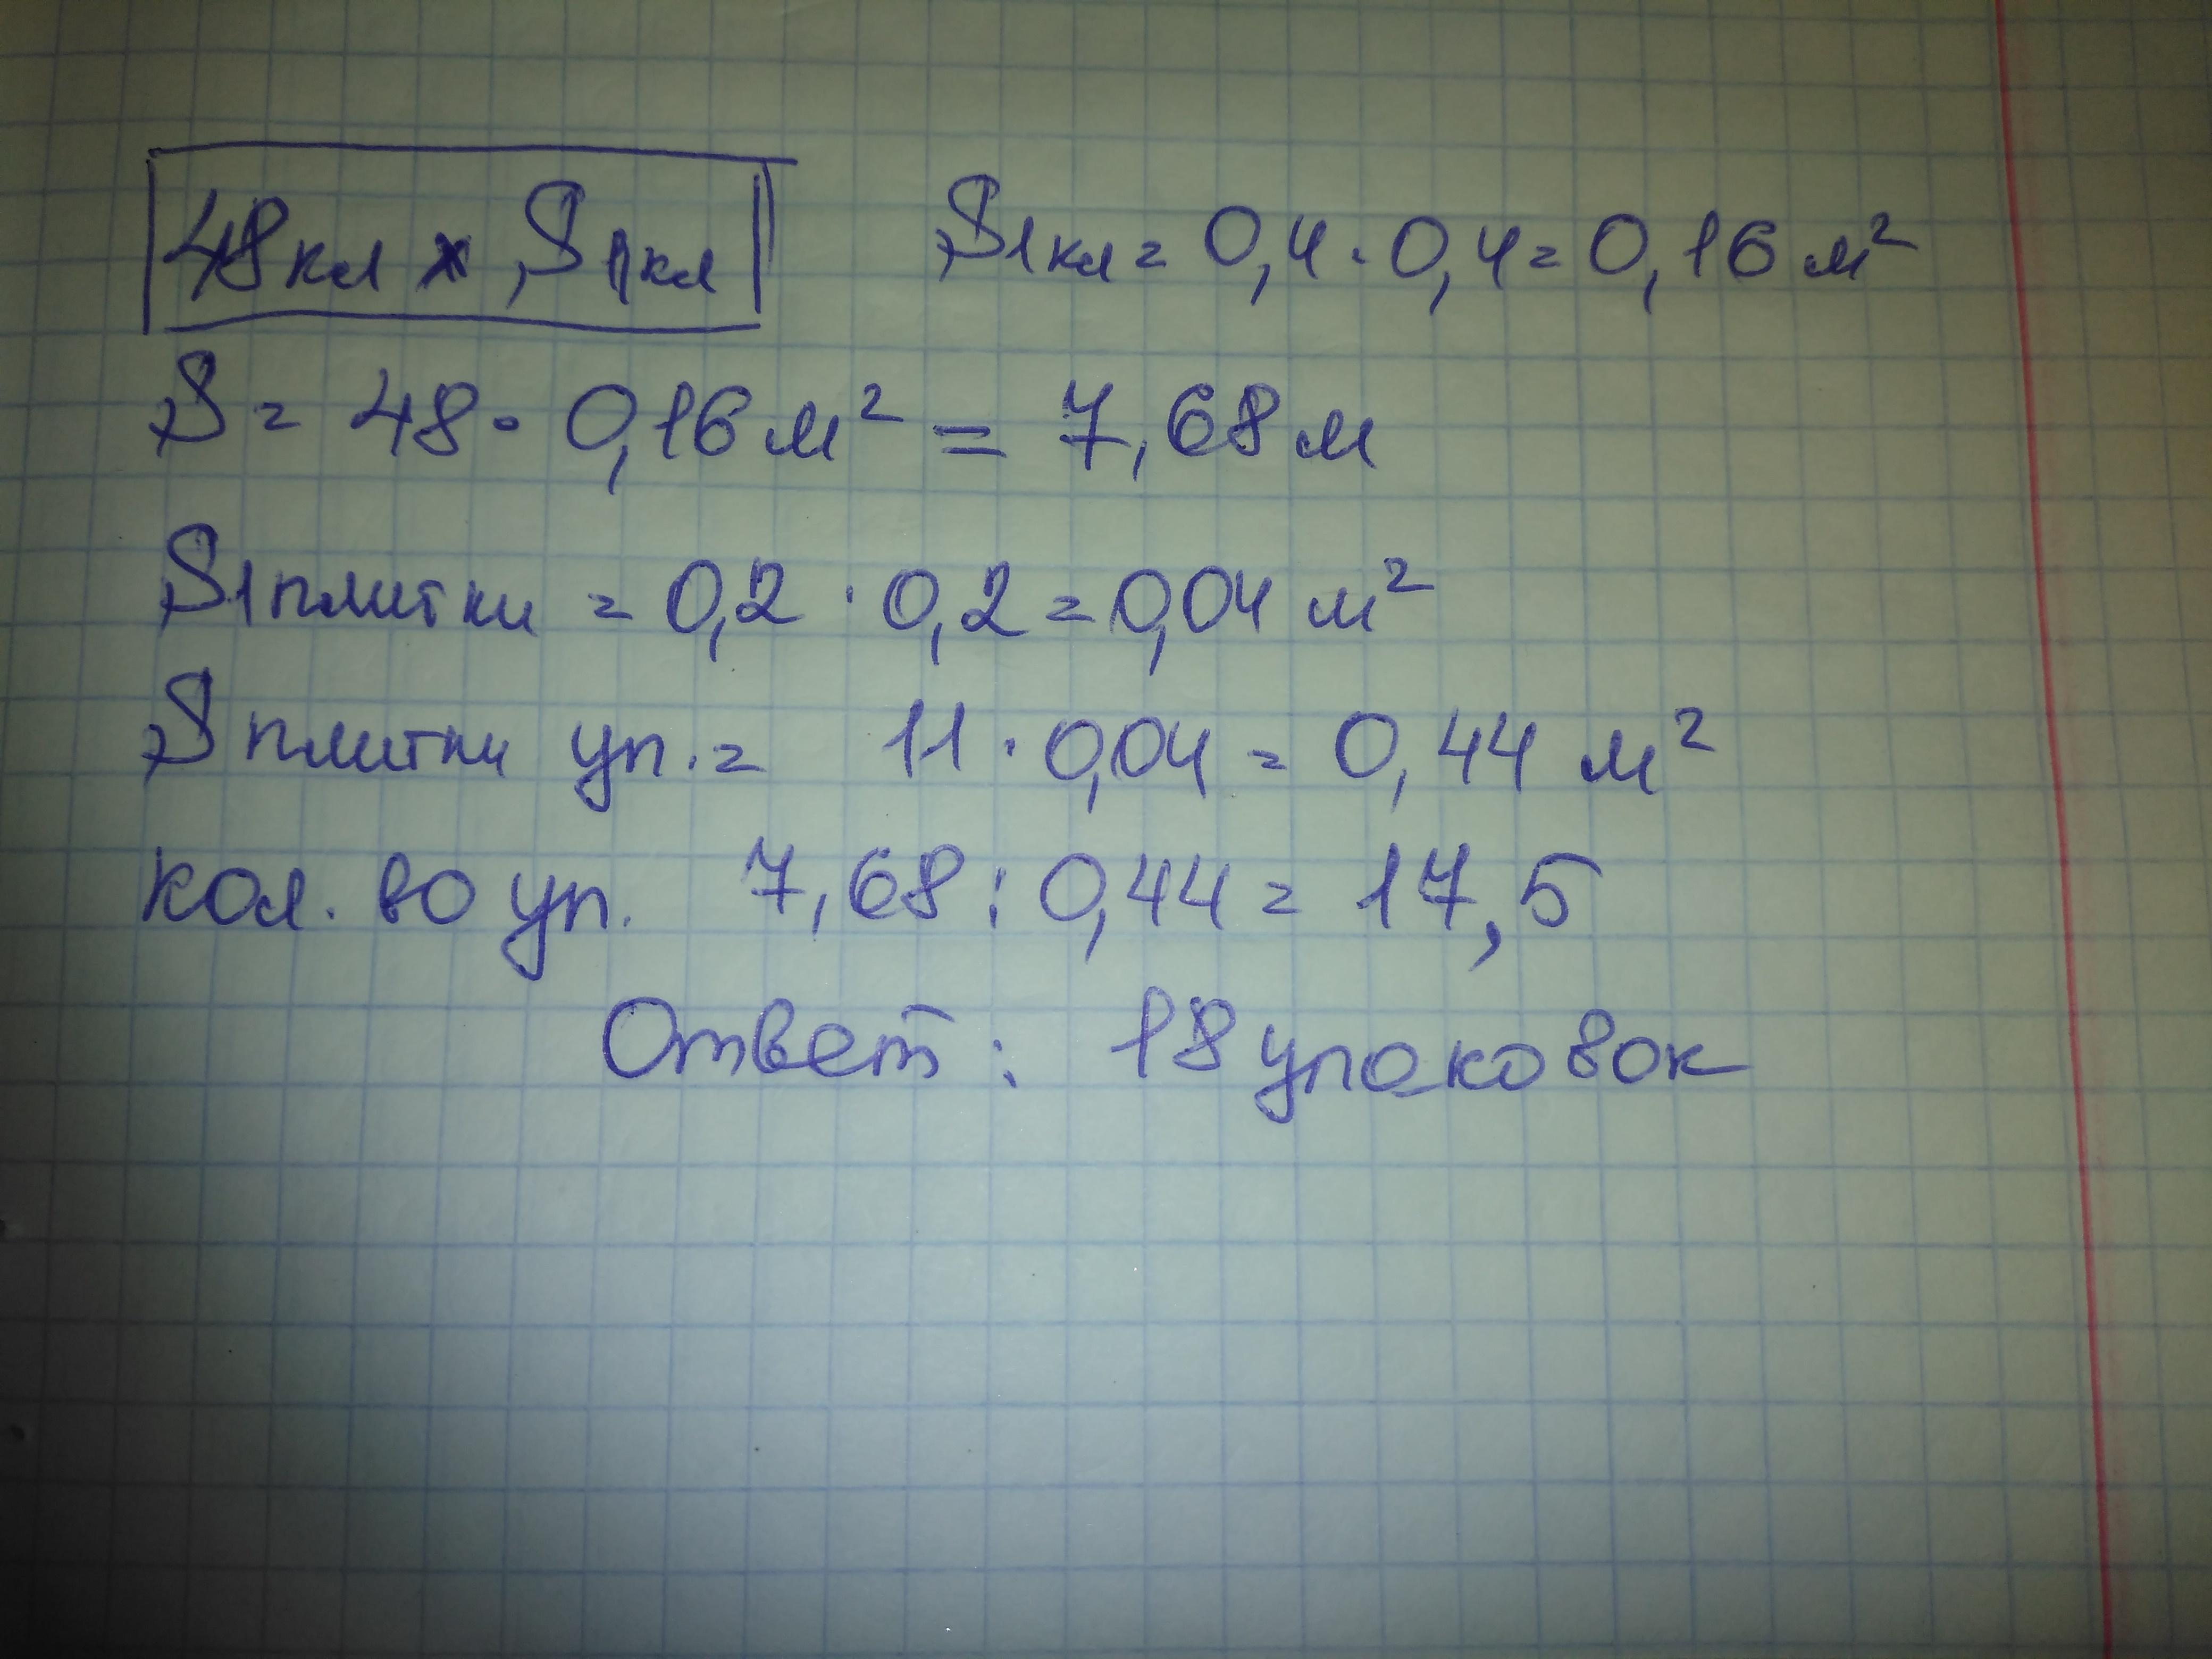 48кл х S1кл S1кл = 0,4 · 0,4 = 0,16 м²
S = 48 · 0,16 м² = 7,68 м
S1плитки = 0,2 · 0,2 = 0,04 м²
Sплитки уп. = 11 · 0,04 = 0,44 м²
кол. во уп. 7,68 : 0,44 = 17,5
Ответ: 18 упоковок